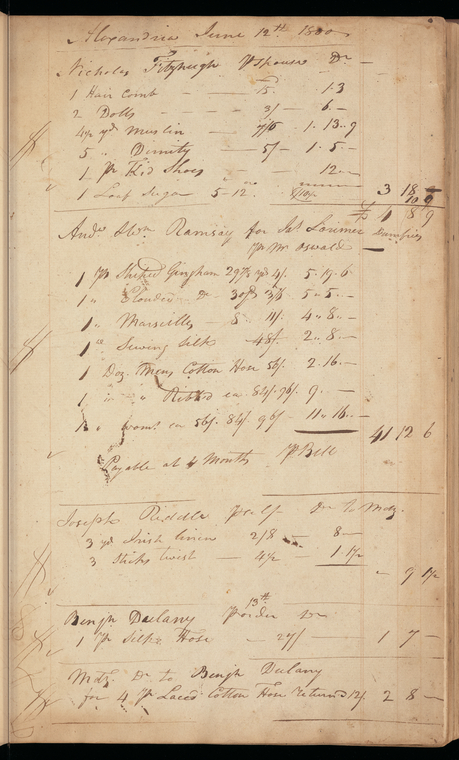 Alexandria June 12th 1800
Nicholas Fitzhugh Pr Spouse Dr
1 Hair Comb 1.3
2 Dolls 3/ 6.–
4½ yds Muslin 7/6 1.13.9
5 " Dimity 5/ 1.5.–
1 Pr Kid Shoes 12.–
3 18 –
1 Loaf Sugar 5–12 10 9
£ 4 8 9
Andw & Wm Ramsay for Jas Lorimer Dumfries
Pr Mr Oswald
1 Ps Gingham 29½ yds 4/. 5.19.6
1 " 30 yds 3/6 5..5.–
1 " Marseilles 8. 11/. 4..8.–
1 " Sewing Silk 48/– 2..8.–
1 Doz. Mens Cotton Hose 56/. 2.16.–
1 " " Ribbd 84/. 96/. 9.–
" woms 56/. 84/. 96/– 11..16.–
41 12 6
Payable at 4 Months Pr Bill
Joseph Riddle Pr self Dr to Mdz.
3 yds Irish linen 2/8 – 8–
3 Sticks twist – 4½ – 1.1½
– 9 1½
13th
Benjn Dulany Pr order Dr
1 Pr Silk Hose – 27/– 1 7 –
Mdz. Dr to Benjn Dulany
for 4 Pr Laced Cotton Hose returnd 12/. 2 8 –